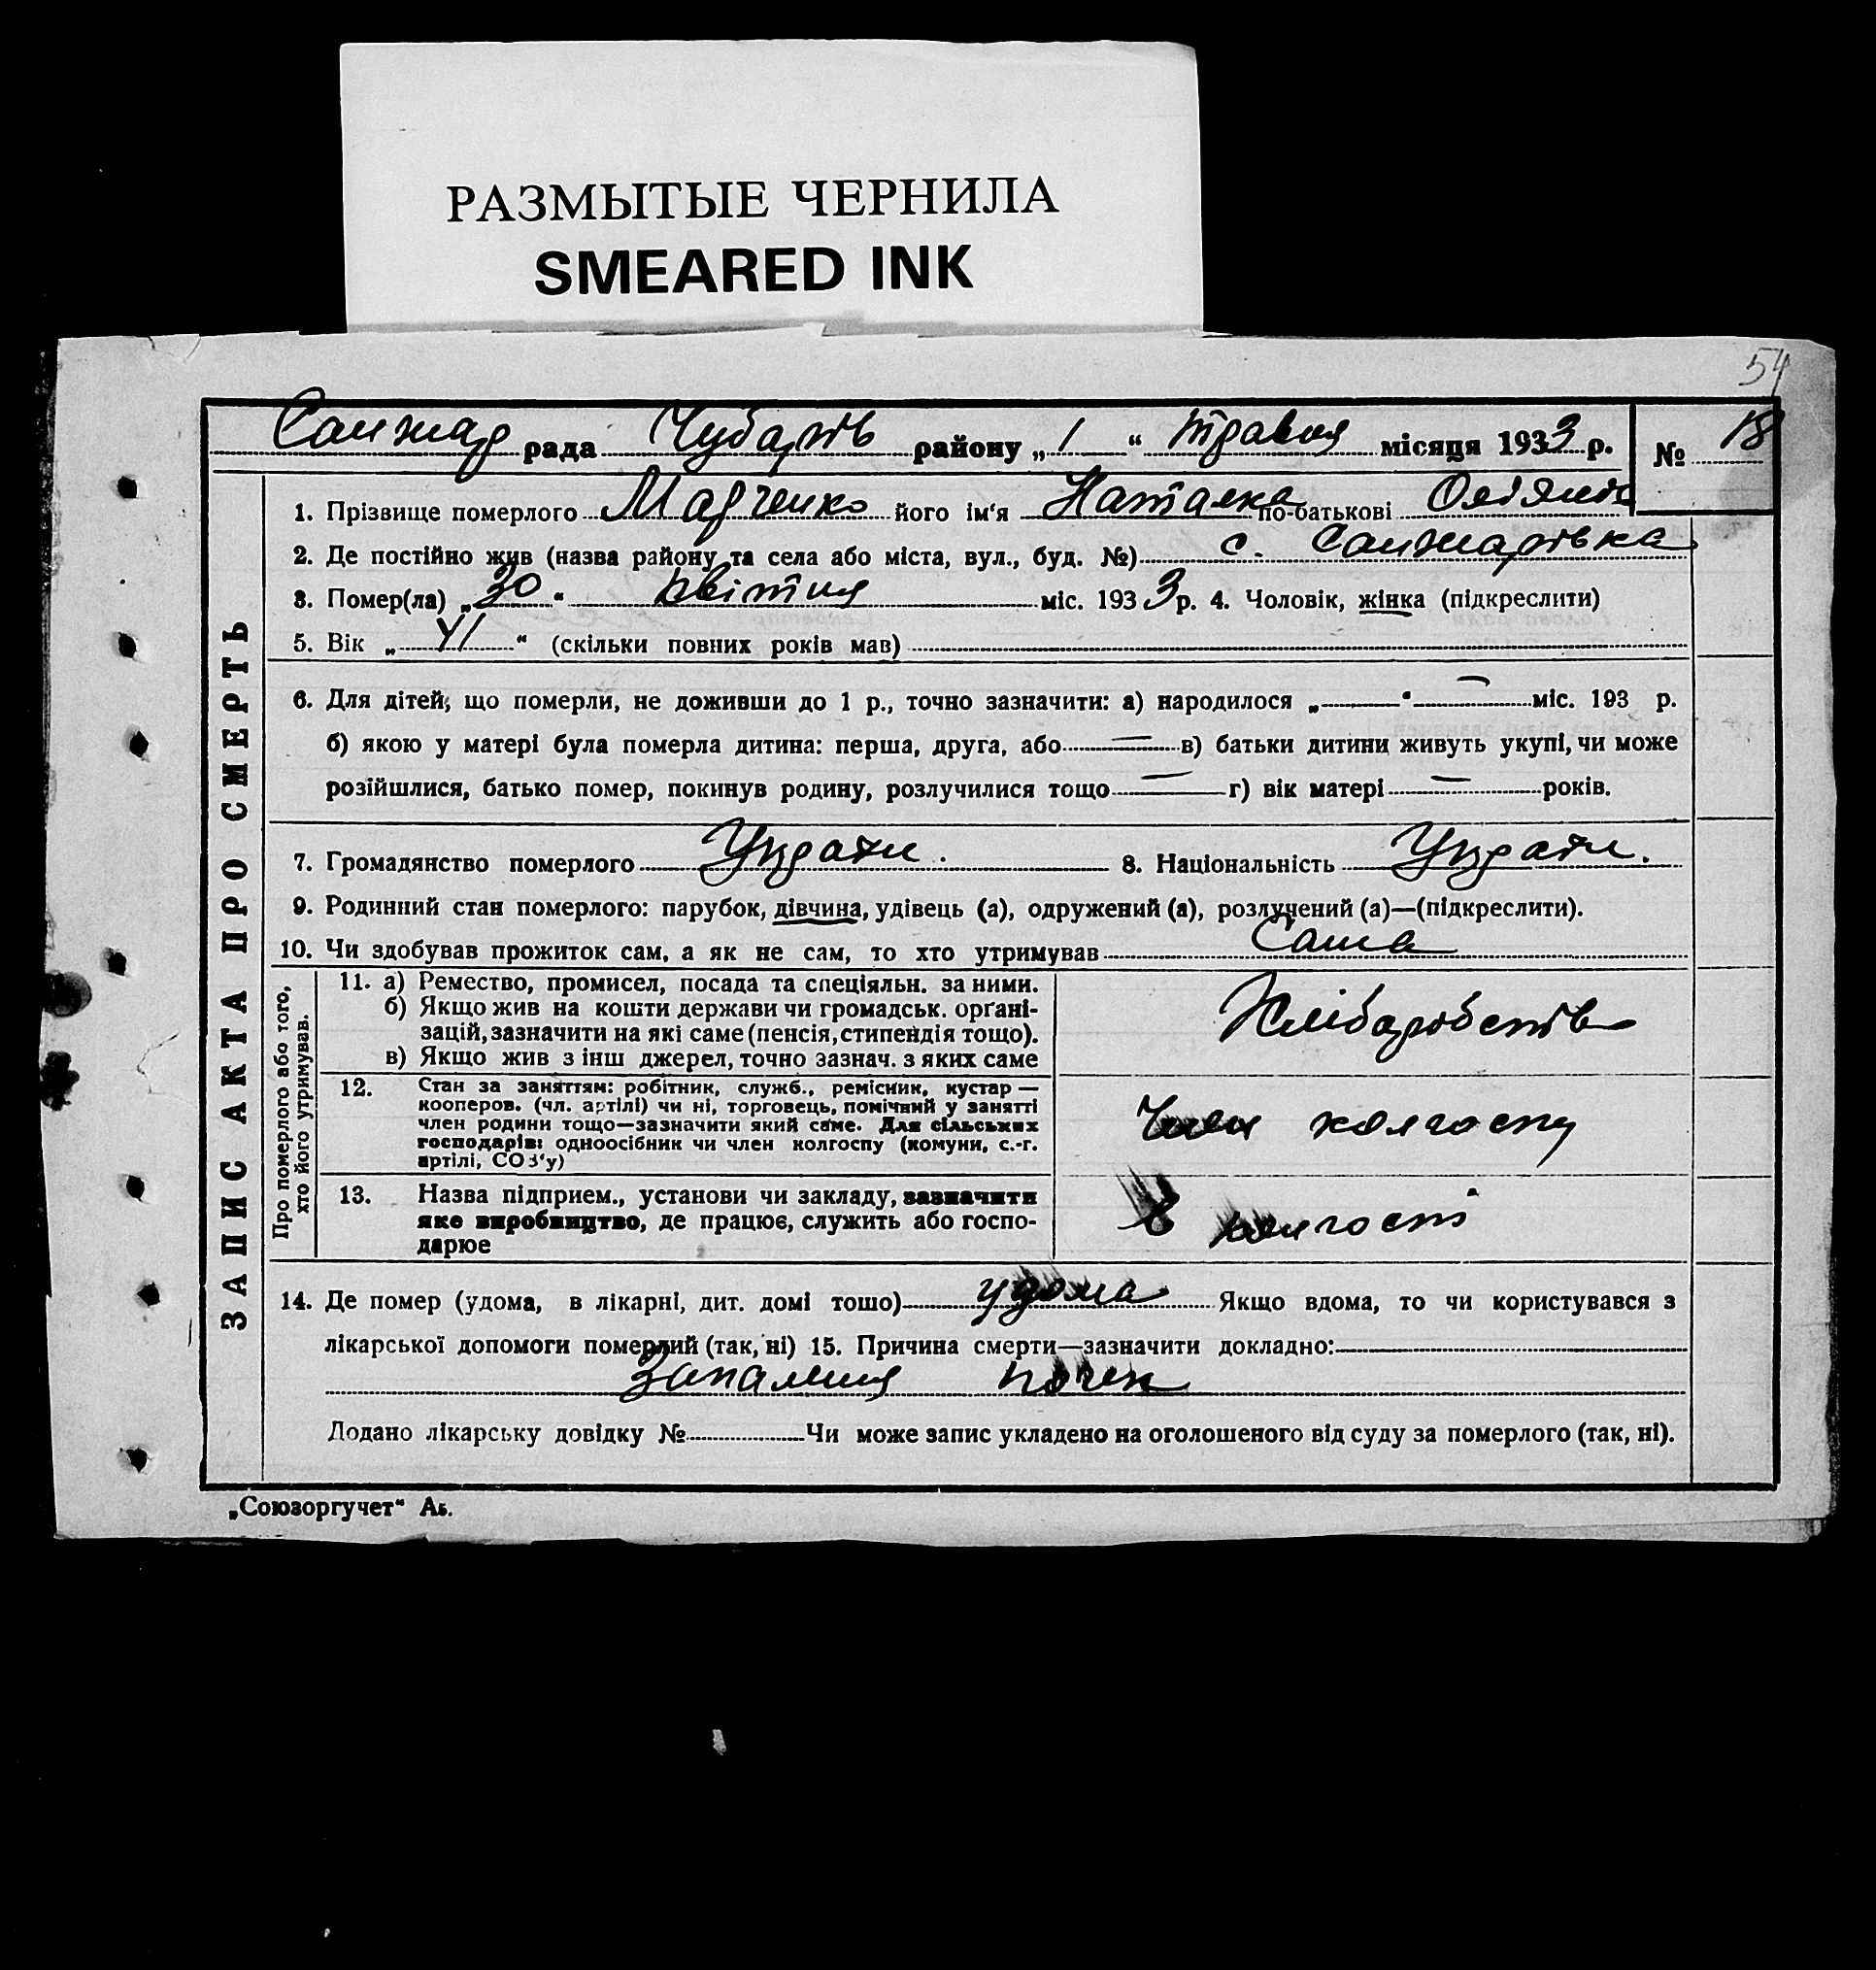 РАЗМЫТЫЕ ЧЕРНИЛА
SMEARED INK
54
Санжар рада Чубарів району „1“ травня місяця 1933 р. № 18
ЗАПИС АКТА ПРО СМЕРТЬ
1. Прізвище померлого Марченко його ім'я Наталка по-батькові
2. Де постійно жив (назва району та села або міста, вул., буд. №) с. Санжарівка
3. Помер(ла) „30“ квітня міс. 1933 р. 4. Чоловік, жінка (підкреслити)
5. Вік „41“ (скільки повних років мав)
6. Для дітей, що померли, не доживши до 1 р., точно зазначити: а) народилося „—“ — міс. 193 р.
б) якою у матері була померла дитина: перша, друга, або — в) батьки дитини живуть укупі, чи може
розійшлися, батько помер, покинув родину, розлучилися тощо — г) вік матері — років.
7. Громадянство померлого Украін. 8. Національність Украін.
9. Родинний стан померлого: парубок, дівчина, удівець (а), одружений (а), розлучений (а)—(підкреслити).
10. Чи здобував прожиток сам, а як не сам, то хто утримував Сама
Про померлого або того,
хто його утримував.
11. а) Ремество, промисел, посада та спеціяльн. за ними.
б) Якщо жив на кошти держави чи громадськ. орґані-
зацій, зазначити на які саме (пенсія, стипендія тощо).
в) Якщо жив з інш джерел, точно зазнач. з яких саме
Хліборобств
12. Стан за заняттям: робітник, служб., ремісник, кустар —
кооперов. (чл. артілі) чи ні, торговець, помічний у занятті
член родини тощо—зазначити який саме. Для сільських
господарів: одноосібник чи член колгоспу (комуни, с.-г.
артілі, СОЗ'у)
Член колгоспу
13. Назва підприєм., установи чи закладу, зазначити
яке виробництво, де працює, служить або госпо-
дарює
в колгоспі
14. Де помер (удома, в лікарні, дит. домі тошо) удома Якщо вдома, то чи користувався з
лікарської допомоги померлий (так, ні) 15. Причина смерти—зазначити докладно:
Запалння почек
Додано лікарську довідку № Чи може запис укладено на оголошеного від суду за померлого (так, ні).
„Союзоргучет“ Аь.